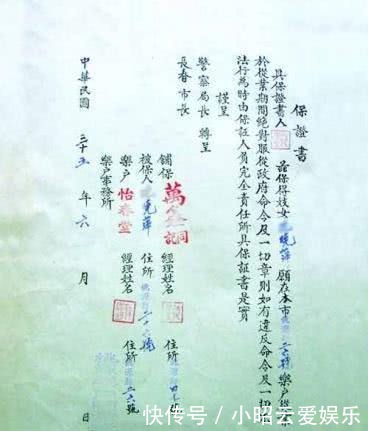 保證書
具保證書人 茲保得妓女 曉萍 願在本市 樂戶從
於從業期間絕對服從政府命令及一切章則如有違反命令及一切
法行為時由保証人員完全責任所具保証書是實
謹呈
警察局長 轉呈
長春市長
鋪保 萬 同記 經理姓名 住所
被保人 曉萍 住所 二十六號
樂戶 怡春堂 經理姓名 住所 二六號
樂戶事務所
中華民國 三十五 年 六 月 日
快传号 / 小昭云爱娱乐